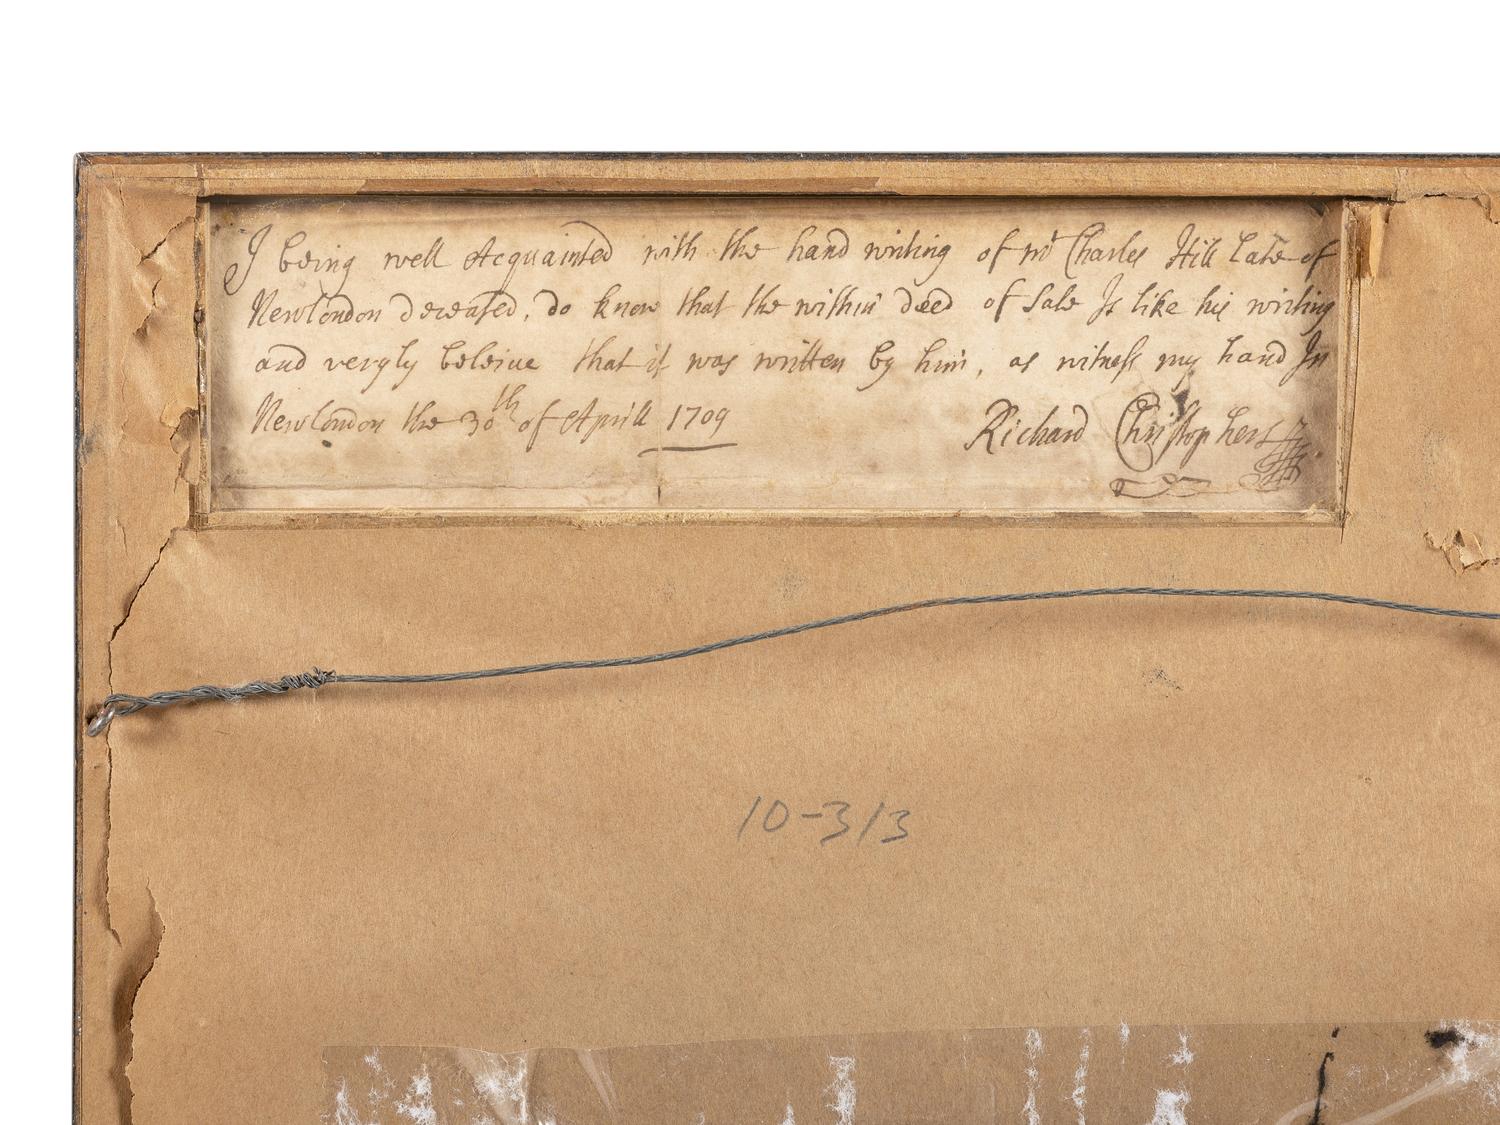 I being well Acquainted with the hand writing of mr Charles Hill Late of
Newlondon deceased, do know that the within deed of Sale Is like his writing
and veryly beleive that it was written by him, as witness my hand In
Newlondon the 30th of Aprill 1709
Richard Christophers
10-313